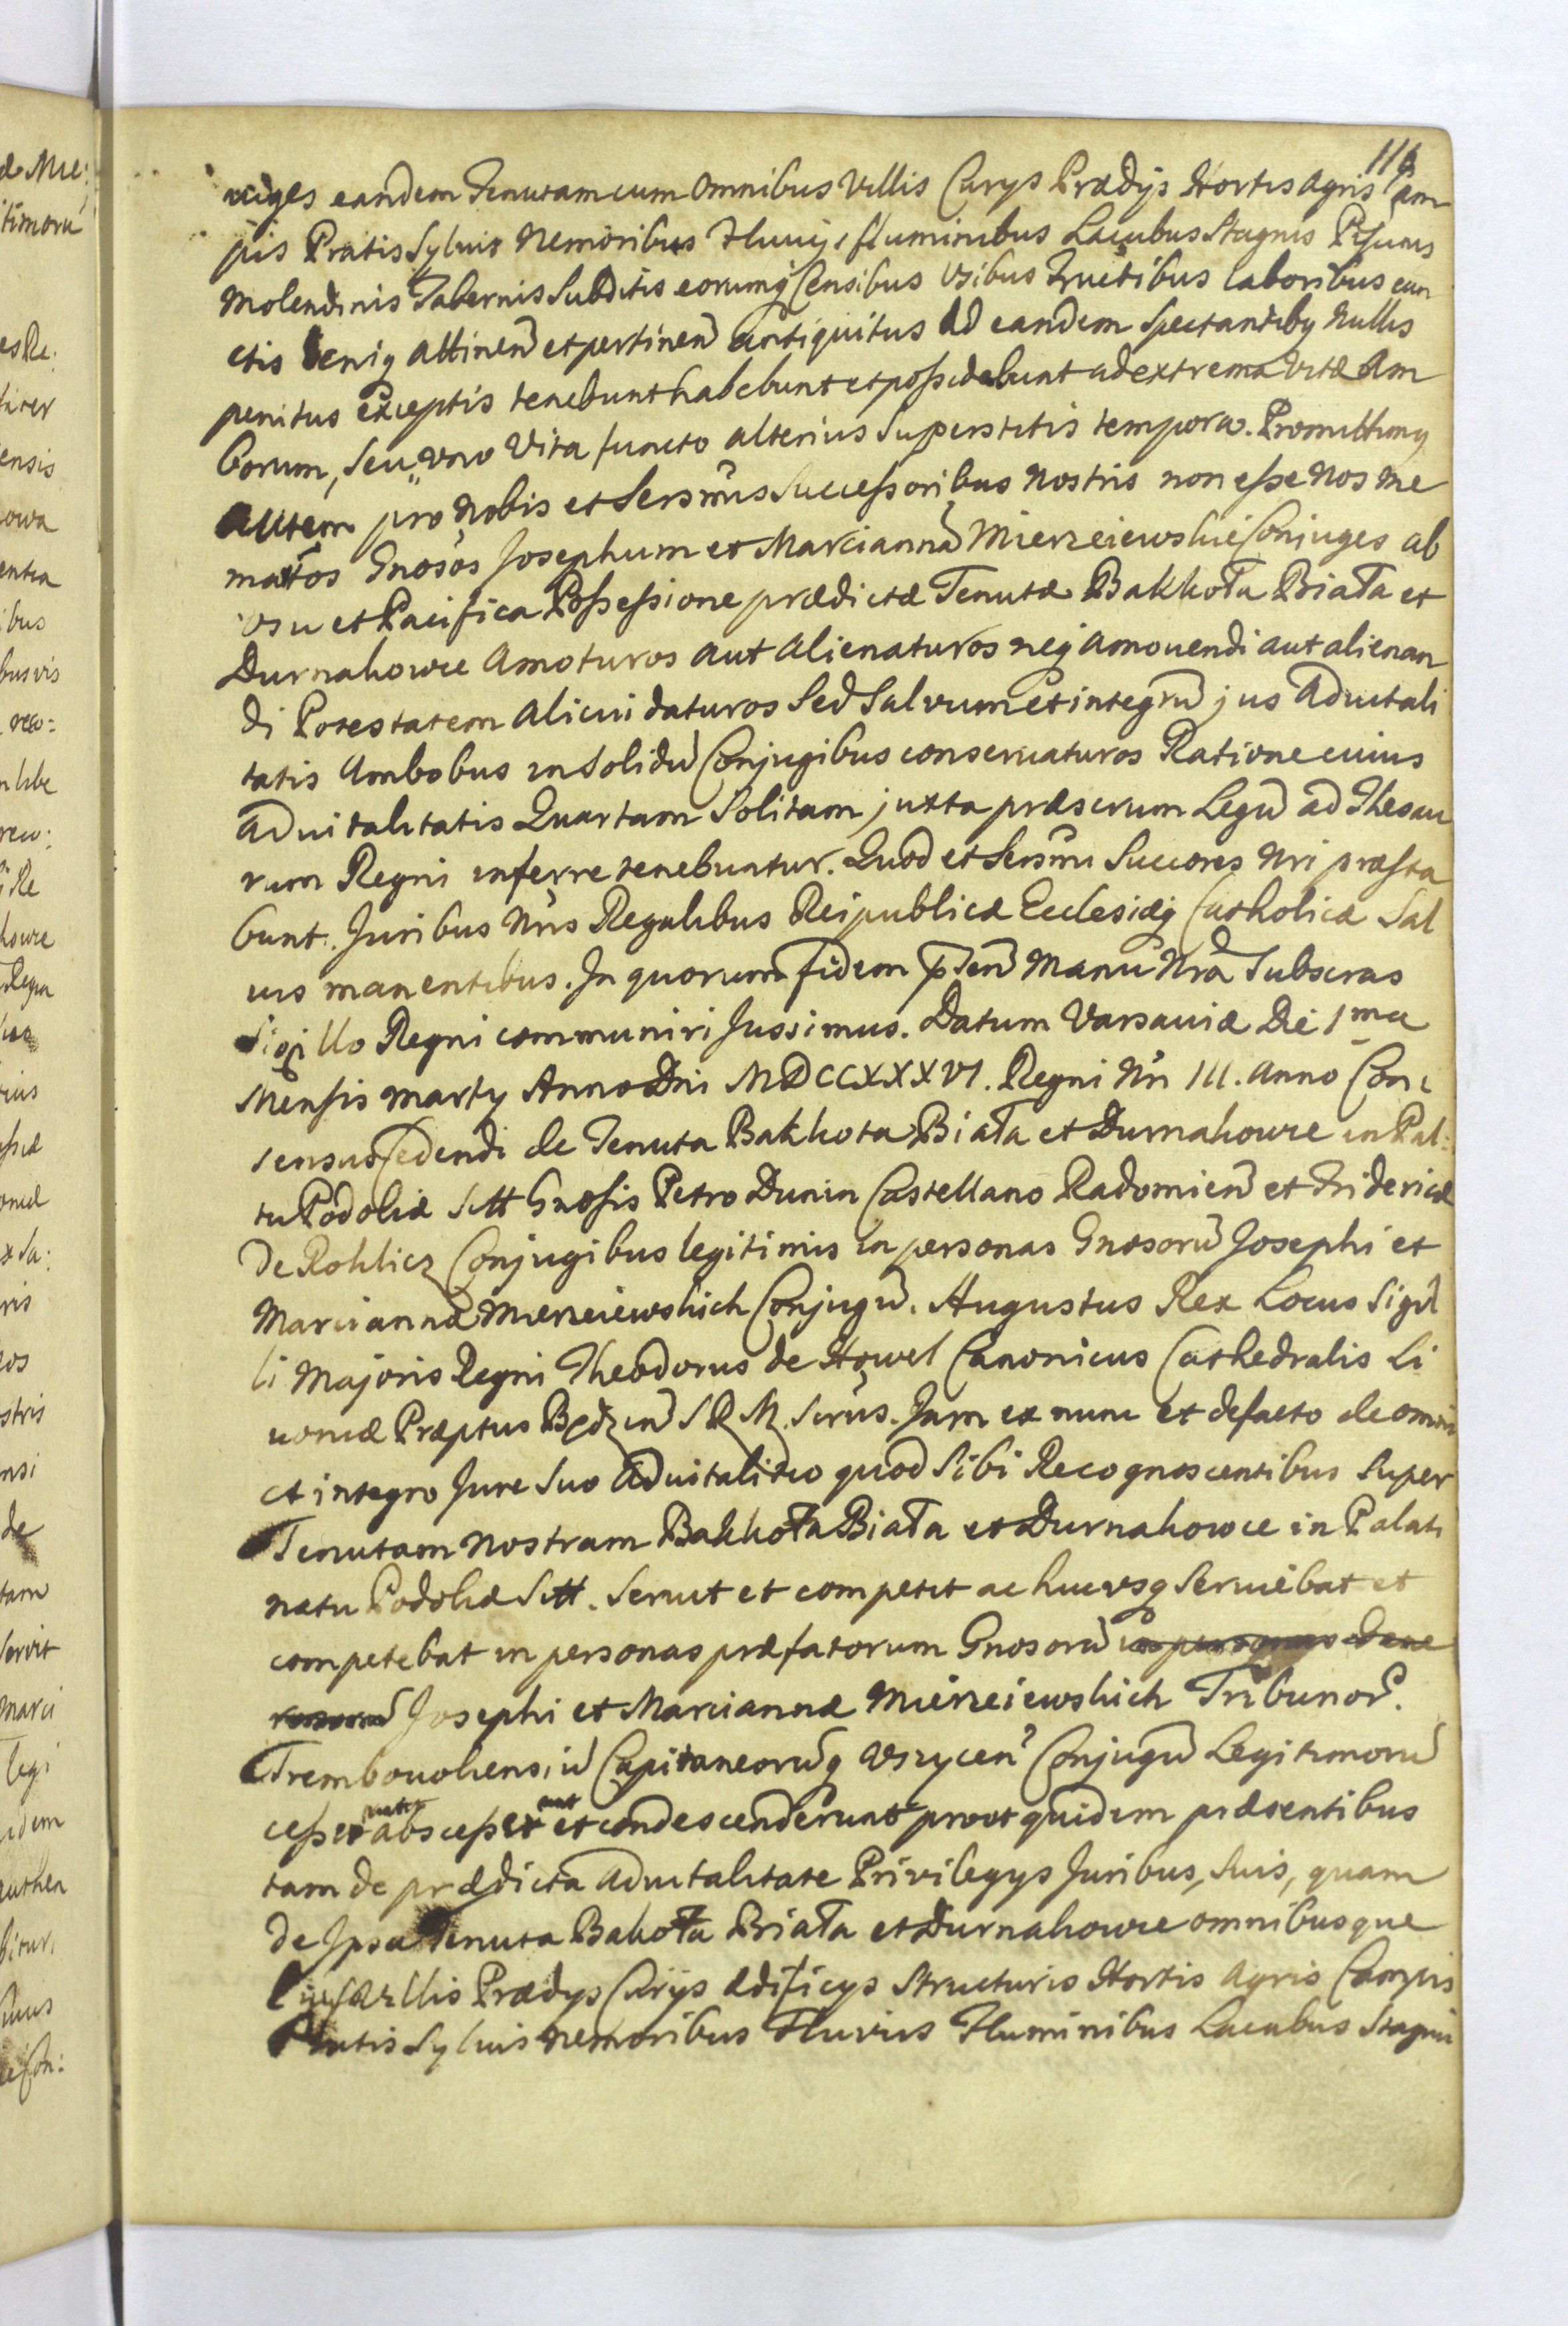 116
niges eandem Tenutam cum omnibus Villis Curys Prædijs Hortis agris Cam
pis Pratis Sylvis Nemoribus Fluuijs fluminibus Lacubus Stagnis Piscinis
Molendinis Tabernis Subditis eorumq Censibus Usibus Fructibus laboribus cun
ctis Deniq attinen et pertinen antiquitus ad eandem Spectantiby Nullis
penitus exceptis tenebunt habebunt et possidebunt ad extrema vitæ Am
borum, seu uno Vita functo alterius Superstitis tempora. Promittimq
autem pro Nobis et Sersmis Successoribus Nostris non esse Nos me
matos Gnosos Josephum et Marciannã Mierzeiewskie Conjuges ab
usu et Pacifica Possessione prædictæ Tenutæ Bakkota Biała et
Durnakowce Amoturos aut Alienaturos neq amouendi aut alienan
di Potestatem alicui daturos Sed Salvum et integrũ jus Aduitali
tatis Ambobus in Solidũ Conjugibus conservaturos Ratione cuius
aduitalitatis Quartam Solitam juxta præscrum Legũ ad Thesau
rum Regni inferre tenebuntur. Quod et Sersmi Succores Nri præsta
bunt. Juribus Nris Regalibus Reipublicæ Ecclesiæq Catholicæ Sal
uis manentibus. In quorum fidem pñten Manu Nra Subscras
Sigillo Regni communiri Jussimus. Datum Varsauiæ Die 1ma
Mensis Marty Anno Dni MDCCXXXVI. Regni Nri III. anno Con:
sensus Cedendi de Tenuta Bakkota Biała et Durnakowce in Pal:
tu Podoliæ Sitt Gnosis Petro Dunin Castellano Radomien et Fridericæ
De Rohlicz Conjugibus legitimis in personas Gnosorũ Josephi et
Marciannæ Mierzeiewskich Conjugũ. Augustus Rex Locus Sigil
li Majoris Regni Theodorus de Howel Canonicus Cathedralis Li
uoniæ Præptus Będzin S R M. Scrius. Jam ex nunc et defacto de omni
et integro Jure Suo aduitalitio quod Sibi Recognoscentibus Super
Tenutam nostram Bakkota Biała et Durnakowce in Palati
natu Podoliæ Sitt. Seruit et competit ac hucusq Seruiebat et
competebat in personas præfatorum Gnosorũ in personas Gene
rosorũ Josephi et Marciannæ Mierzeiewskich Tribunor.
Trembouoliensiũ Capitaneorũq Uszycen Conjugũ Legitimorũ
cesserunt abscesserunt et condescenderunt prout quidem præsentibus
tam de prædicta aduitalitate Privilegys Juribus, Suis, quam
de Ipsa Tenuta Bakota Biała et Durnakowce omnibusque
Villis Prædys Curijs ædificys Structuris Hortis Agris Campis
Pratis Syluis nemoribus Fluviis Fluminibus Lacubus Stagni